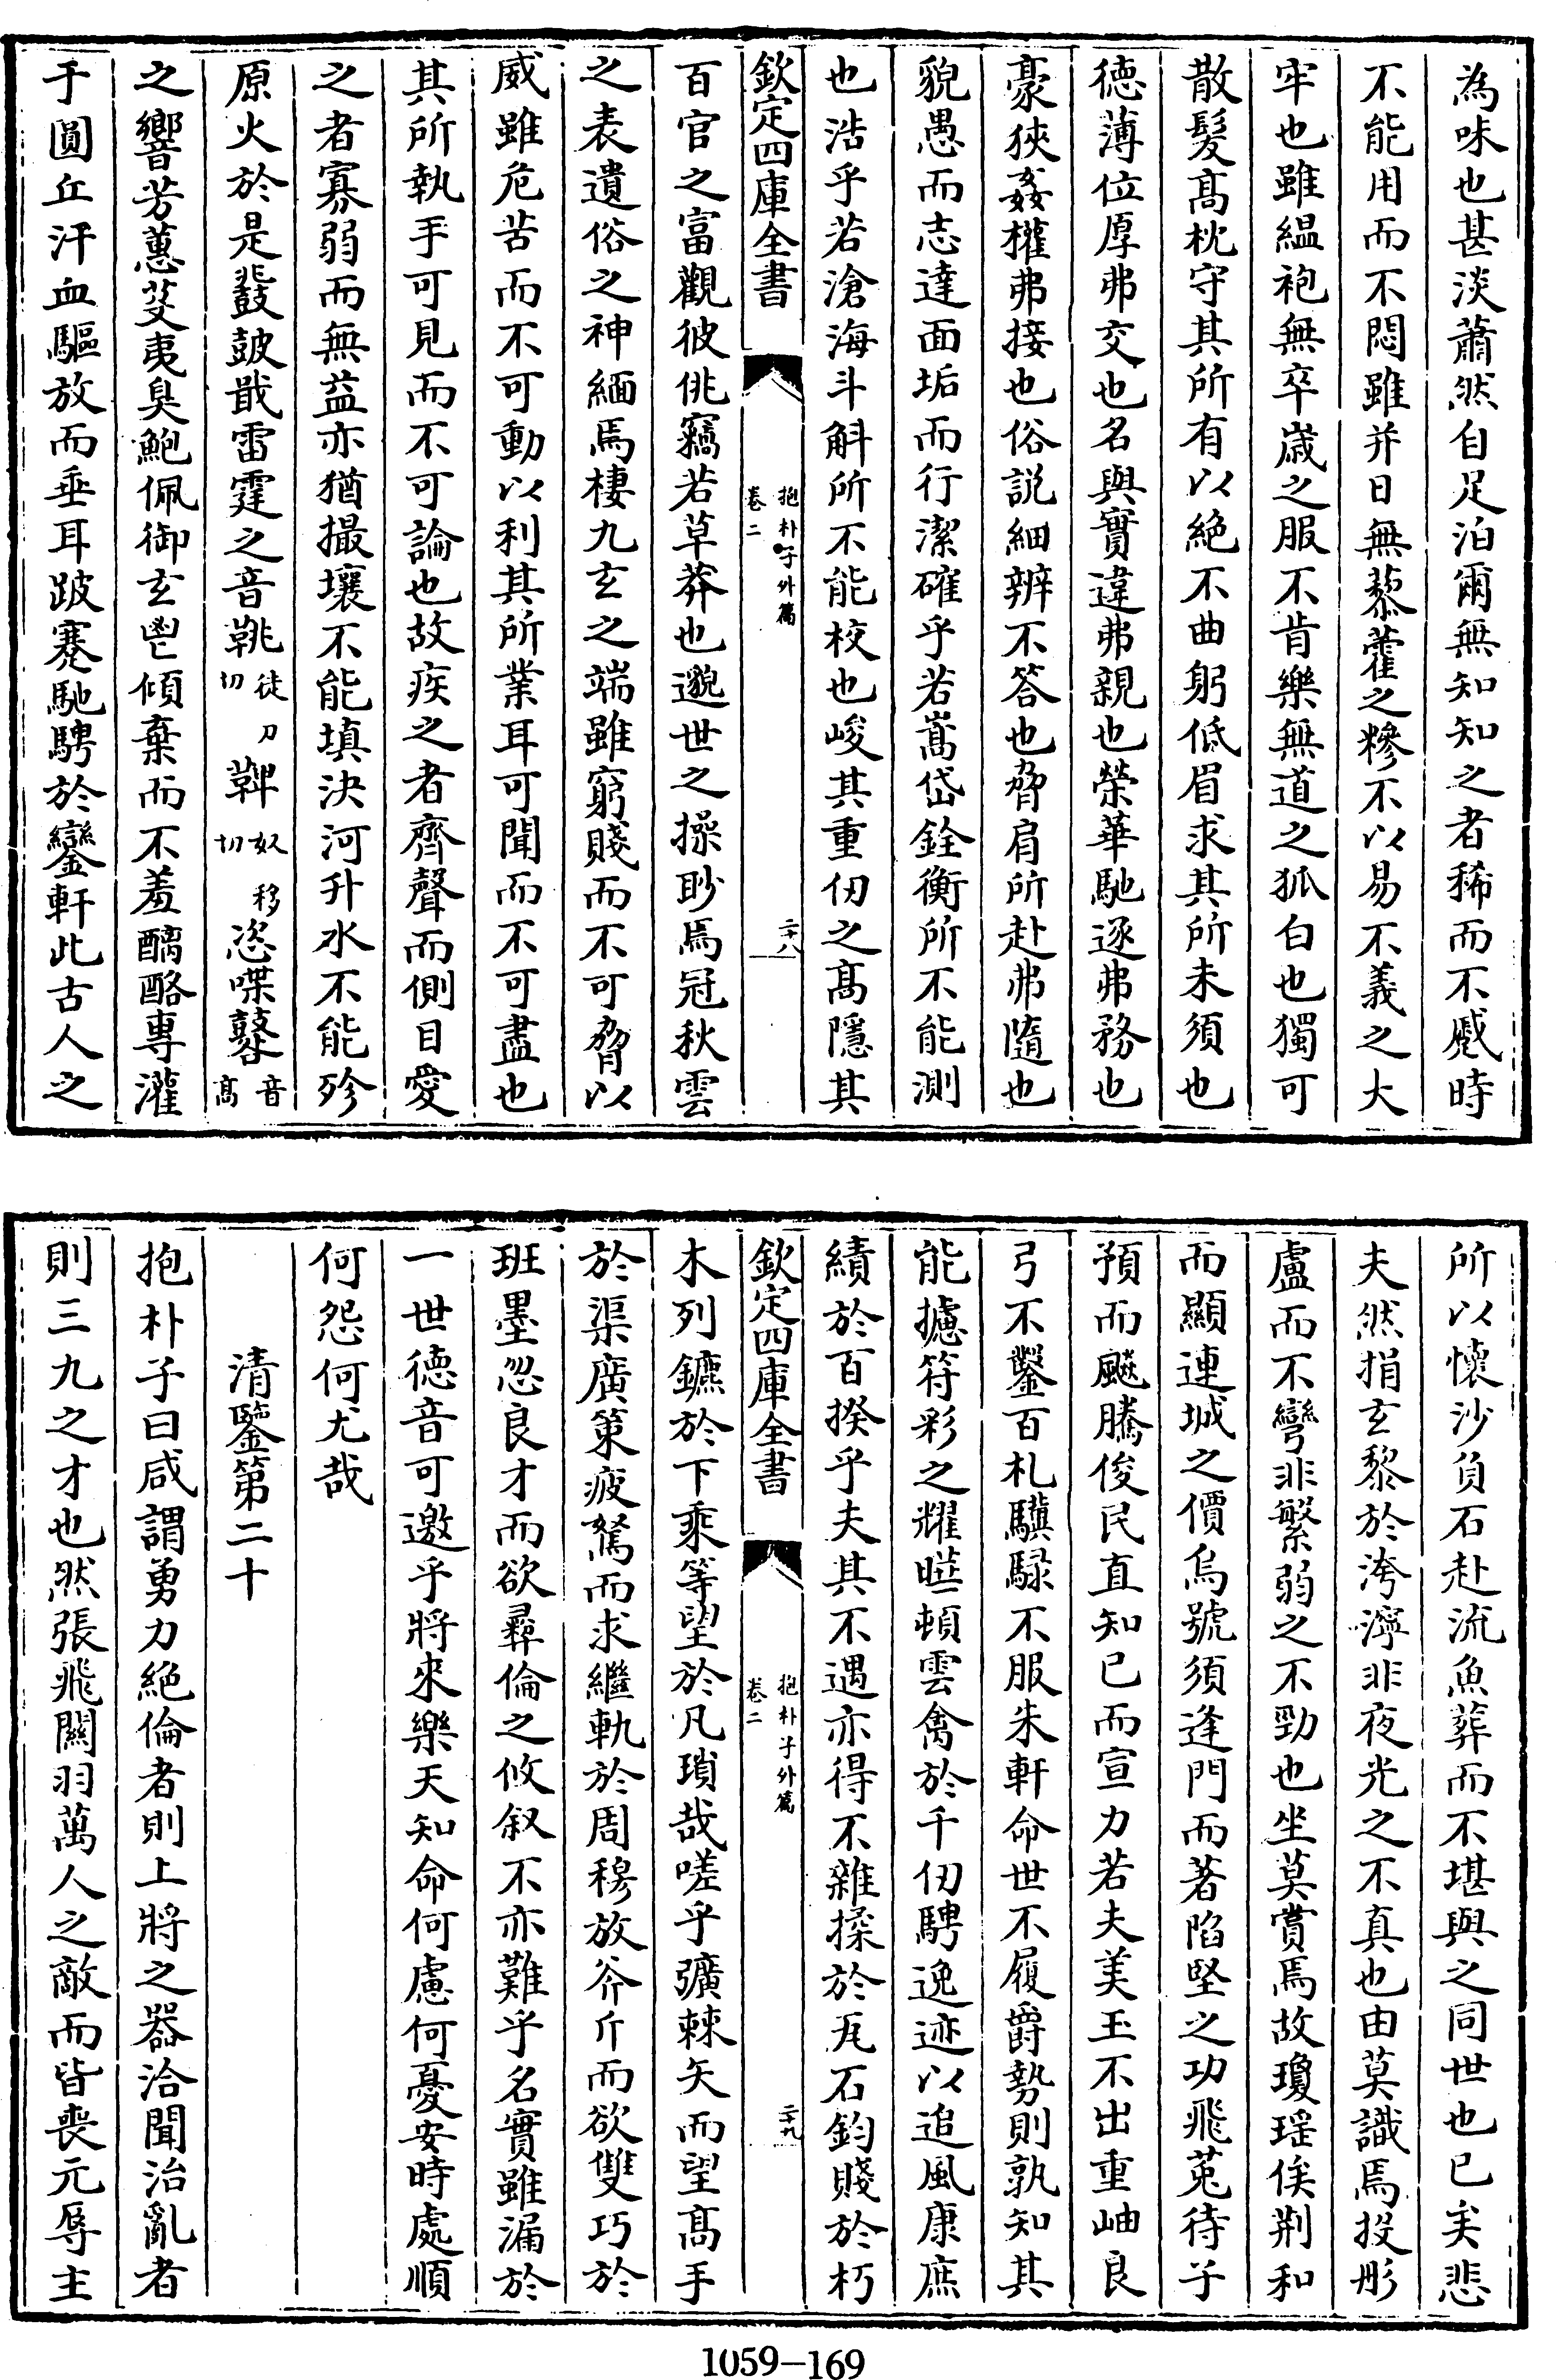 為味也甚淡蕭然自足泊爾無知知之者稀而不慼時
不能用而不悶雖并日無藜藿之糝不以易不義之大
牢也雖縕袍無卒歲之服不肯樂無道之狐白也獨可
散髮髙枕守其所有以絶不曲躬低眉求其所未須也
徳薄位厚弗交也名與實違弗親也榮華馳逐弗務也
豪狹姦權弗接也俗説細辨不答也脅肩所赴弗隨也
貌愚而志達面垢而行潔確乎若嵩岱銓衡所不能測
也浩乎若滄海斗斛所不能校也峻其重仞之髙隱其
欽定四庫全書 抱朴子外篇 卷二 二十八
百官之富觀彼佻竊若草莽也邈世之操眇焉冠秋雲
之表遺俗之神緬焉棲九玄之端雖窮賤而不可脅以
威雖危苦而不可動以利其所業耳可聞而不可盡也
其所執手可見而不可論也故疾之者齊聲而側目愛
之者寡弱而無益亦猶撮壤不能填決河升水不能殄
原火於是鼖鼓戢雷霆之音鞉徒刀切鞞奴移切恣喋鼛音髙
之響芳蕙芟夷臭鮑佩御玄鬯傾棄而不羞醨酪專灌
于圓丘汗血驅放而垂耳跛蹇馳騁於鑾軒此古人之
所以懷沙負石赴流魚葬而不堪與之同世也已矣悲
夫然捐玄黎於洿濘非夜光之不真也由莫識焉投彤
盧而不彎非繁弱之不勁也坐莫賞焉故瓊瑶俟荆和
而顯連城之價烏號須逢門而著陷堅之功飛莵待子
預而飈騰俊民直知已而宣力若夫美玉不出重岫良
弓不鑿百札驥騄不服朱軒命世不履爵勢則孰知其
能攄符彩之耀曄頓雲禽於千仞騁逸迹以追風康庶
績於百揆乎夫其不遇亦得不雜揉於瓦石鈞賤於朽
欽定四庫全書 抱朴子外篇 卷二 二十九
木列鑣於下乘等望於凡瑣哉嗟乎彍棘矢而望髙手
於渠廣策疲駑而求繼軌於周穆放斧斤而欲雙巧於
班墨忽良才而欲彞倫之攸叙不亦難乎名實雖漏於
一世徳音可邀乎將來樂天知命何慮何憂安時處順
何怨何尤哉
清鑒第二十
抱朴子曰咸謂勇力絶倫者則上將之器洽聞治亂者
則三九之才也然張飛闗羽萬人之敵而皆喪元辱主
1059-169